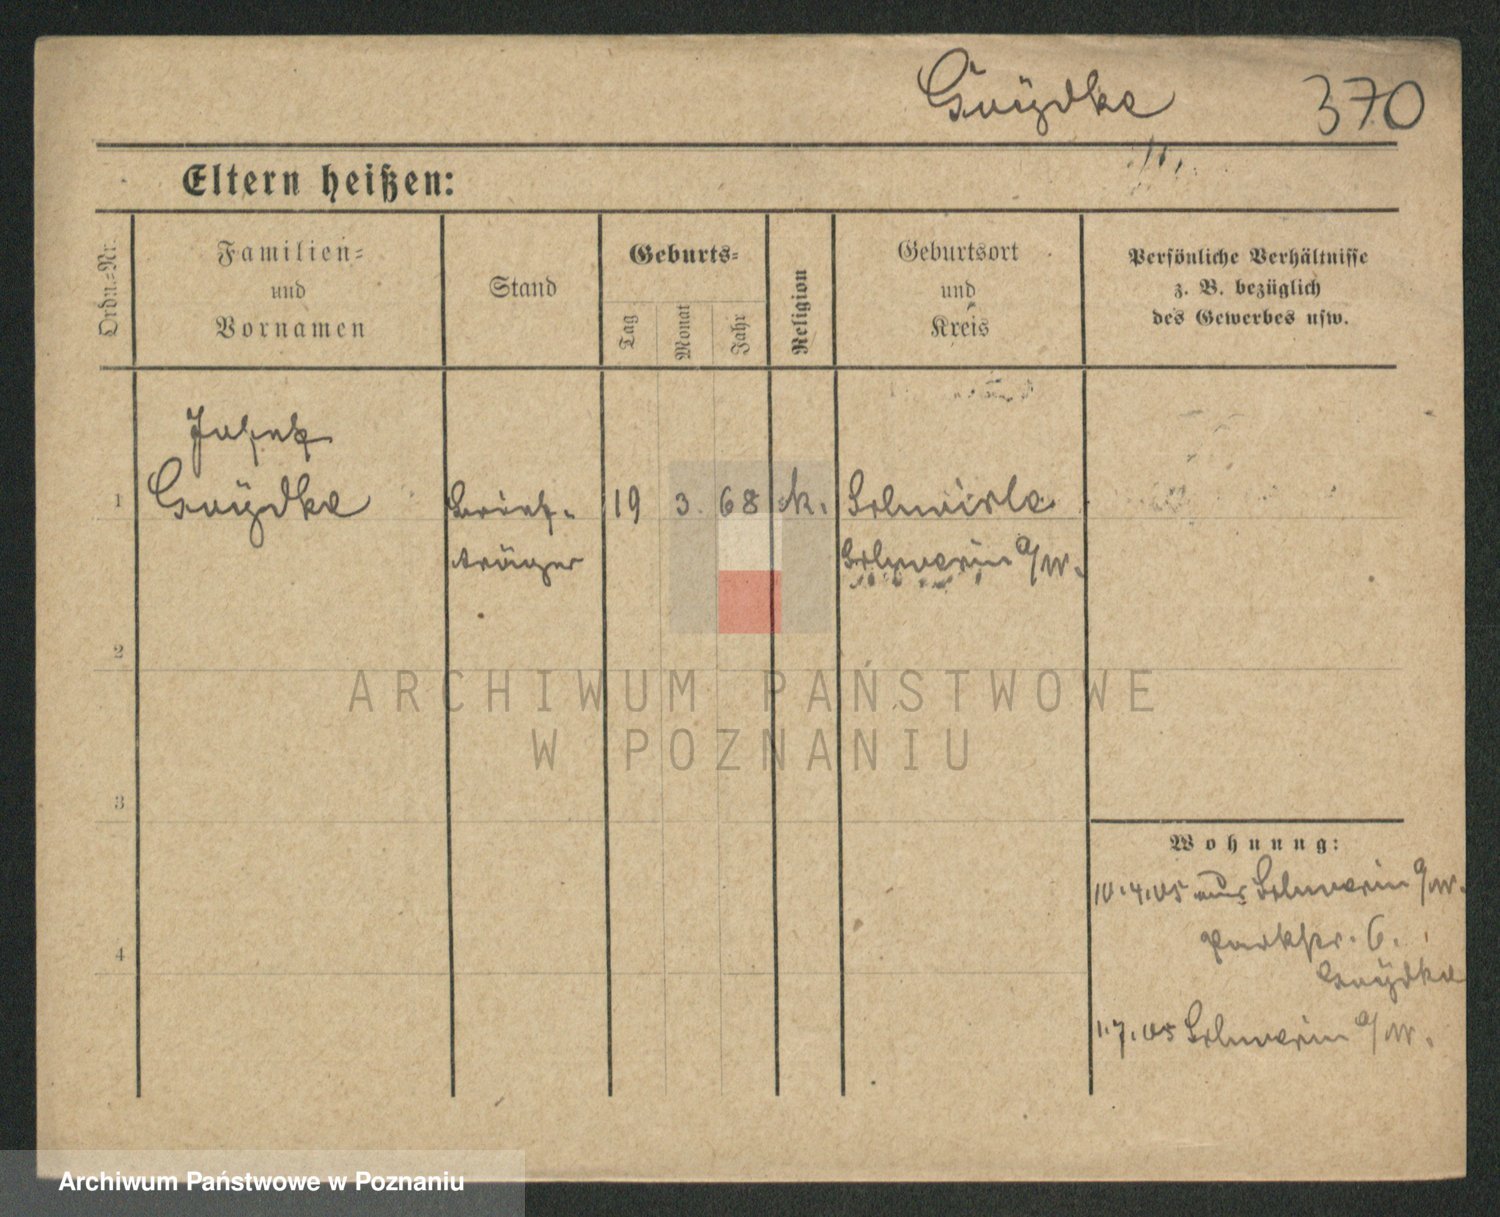 Gnÿdka 370
Eltern heißen:
Ordn.=Nr.
Familien=
und
Vornamen
Stand
Geburts=
Tag
Monat
Jahr
Religion
Geburtsort
und
Kreis
Persönliche Verhältnisse
z. B. bezüglich
des Gewerbes usw.
Josef
1 Gnÿdka Brief- 19 3. 68 k. Schweinert
träger Schwerin a/W.
2
3
4
Wohnung:
10.4.05 aus Schwerin a/W.
Parkstr. 6.
Gnÿdka
1.7.05 Schwerin a/W.
ARCHIWUM PAŃSTWOWE
W POZNANIU
Archiwum Państwowe w Poznaniu